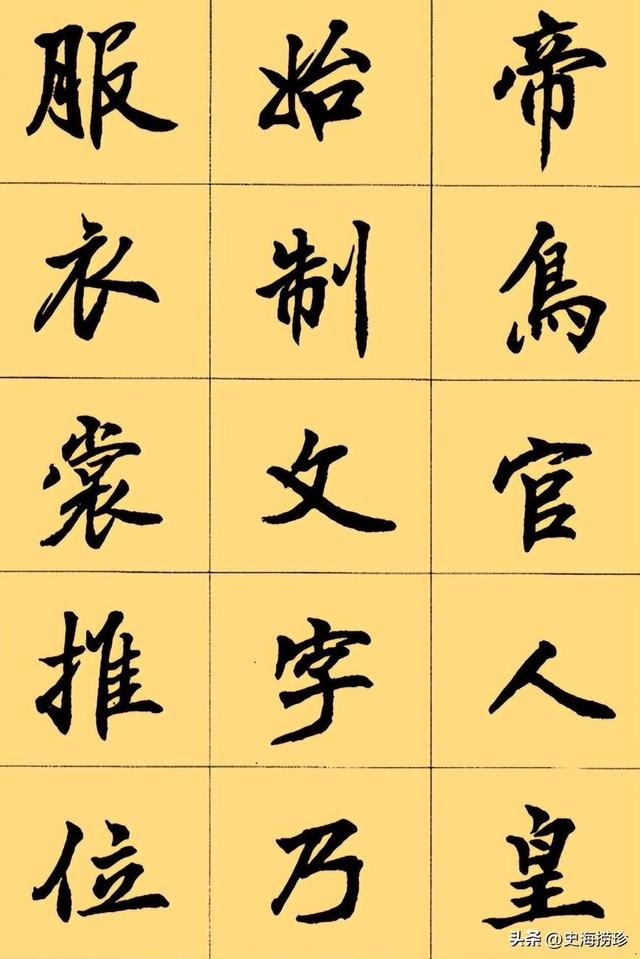 帝鳥官人皇
始制文字乃
服衣裳推位
头条 @史海捞珍